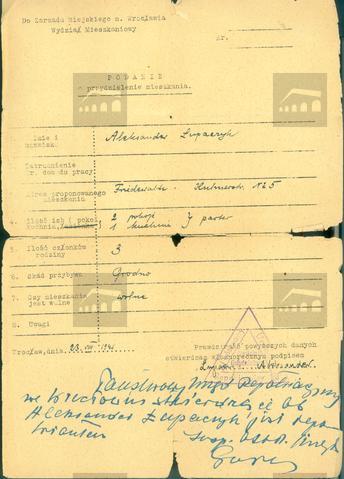 Do Zarządu Miejskiego m. Wrocławia
Wydział Mieszkaniowy
Nr.
PODANIE
o przydzielenie mieszkania.
Imię i nazwisk. Aleksander Łupaczyk
Zatrudnienie
nr. dow do pracy
Adres proponowanego mieszkania Friedewalde - № 5
4. Ilość izb ( pokoi kuchnia, 2 pokoje I parter
1 kuchnia
5. Ilość członków rodziny 3
6. Skąd przybywa Grodno
7. Czy mieszkanie jest wolne wolne
8. Uwagi
Wrocław, dnia 23 VIII 1945
Prawdziwość powyższych danych
stwierdzam własnoręcznym podpisem
Państwowy Urząd Repatriacyjny
we Wrocławiu stwierdza, iż ob
Aleksander Łupaczyk jest repa
triantem